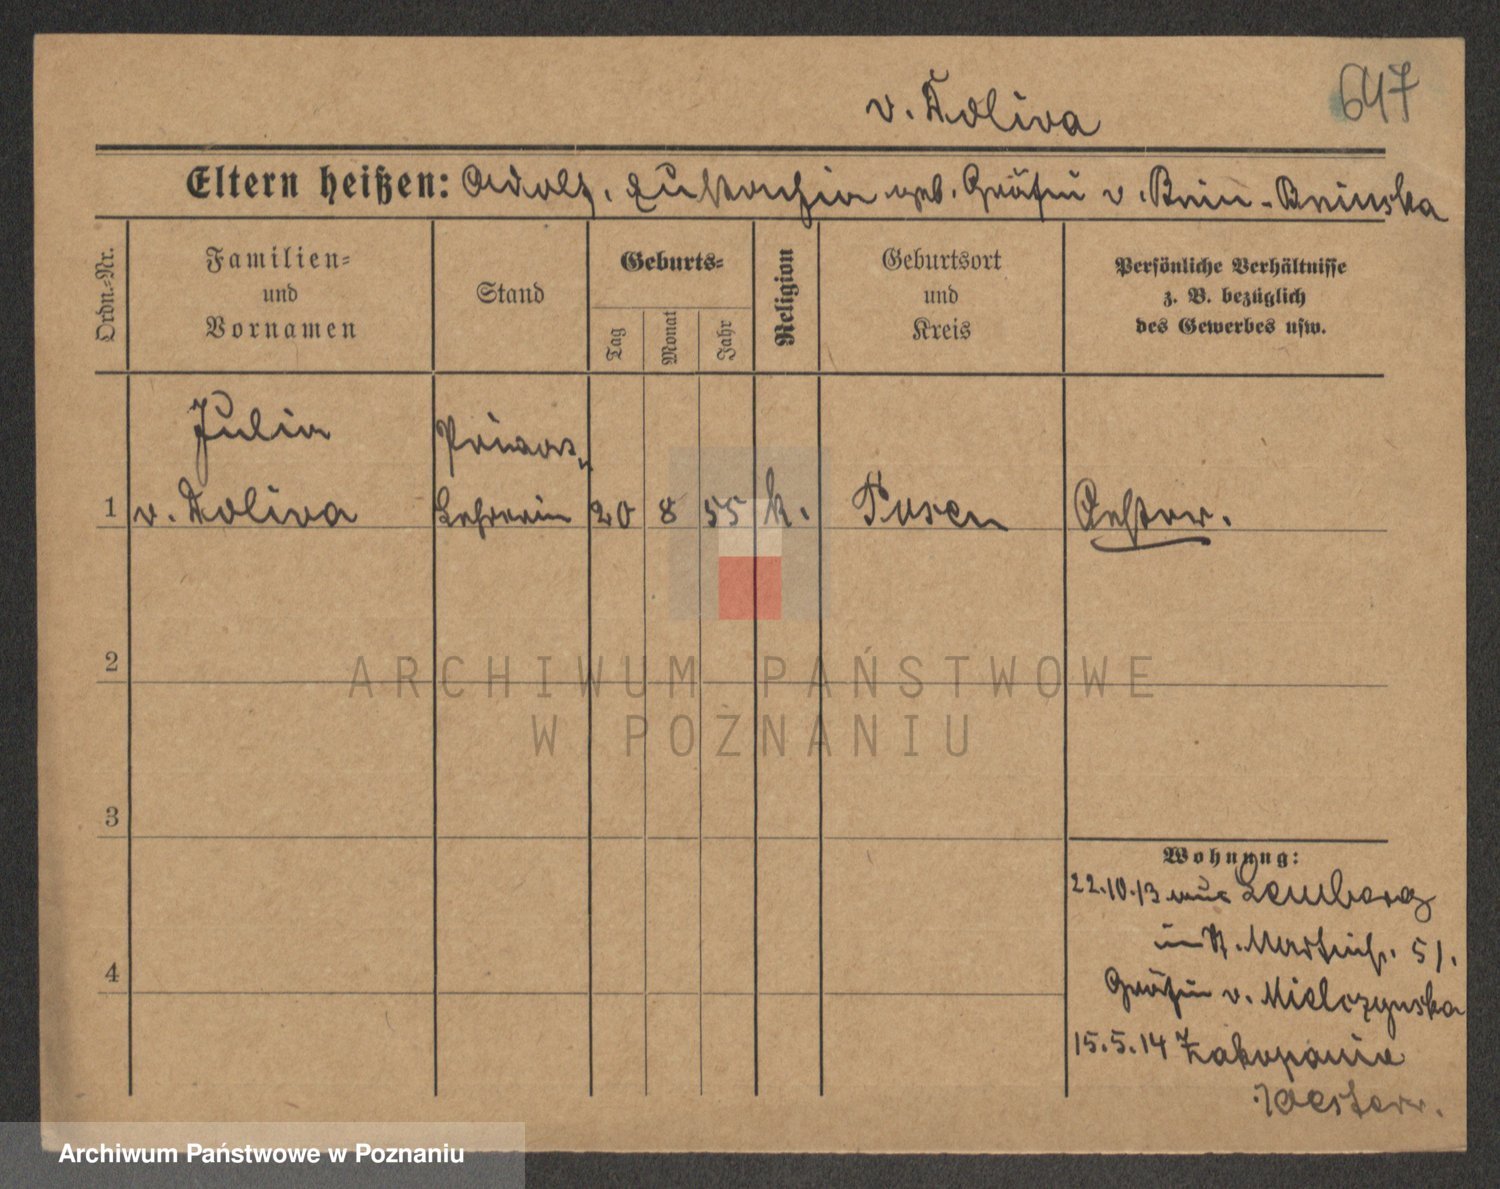 v. Toliva
647
Eltern heißen: Adolf, Eustachia geb. Gräfin v. Bnin-Bninska
Ordn.-Nr.
Familien-
und
Vornamen
Stand
Geburts-
Tag
Monat
Jahr
Religion
Geburtsort
und
Kreis
Persönliche Verhältnisse
z. B. bezüglich
des Gewerbes usw.
Julia
1 v. Toliva
Lehrerin
20 8 55 k. Posen Oestrr.
2
3
4
Wohnung:
22.10.13 aus Lemberg
in St. Martinstr. 51.
Gräfin v. Mielczynska
15.5.14 Zakopane
Oesterr.
ARCHIWUM PAŃSTWOWE
W POZNANIU
Archiwum Państwowe w Poznaniu